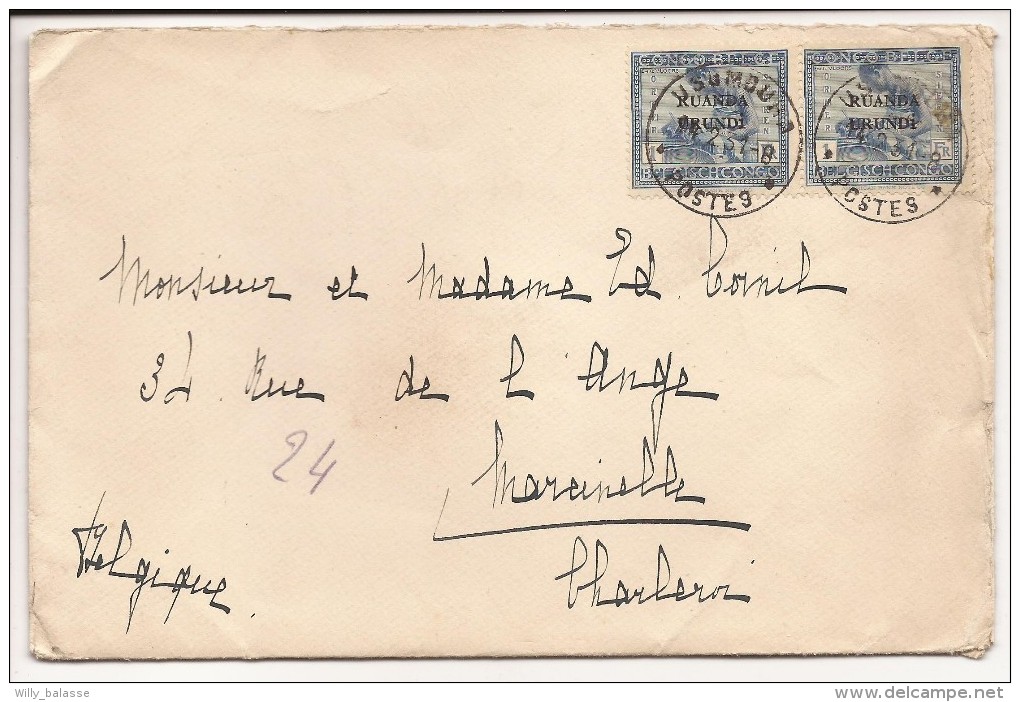 CONGO BELGE CONGO BELGE
RUANDA RUANDA
URUNDI URUNDI
1 FR 1 FR
BELGISCH CONGO BELGISCH CONGO
POSTES POSTES
Monsieur et Madame Ed. Cornil
34 Rue de l'Ange
24
Marcinelle
Belgique.
Charleroi
Willy_balasse
delcampe.net